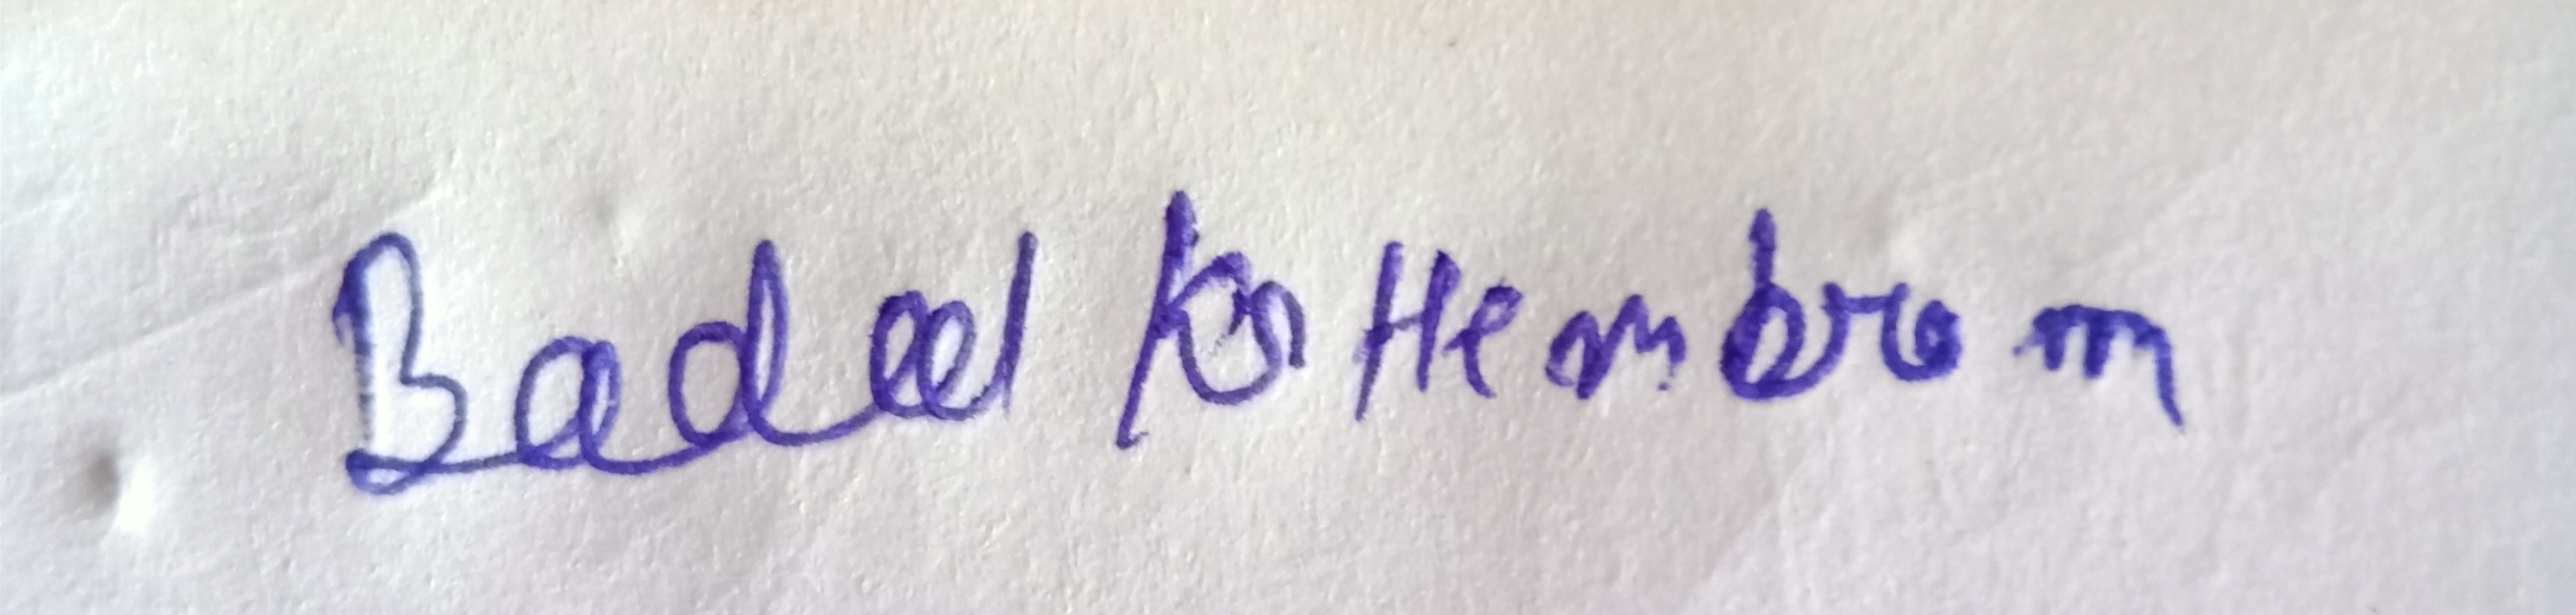 Badal Kr Hembrom